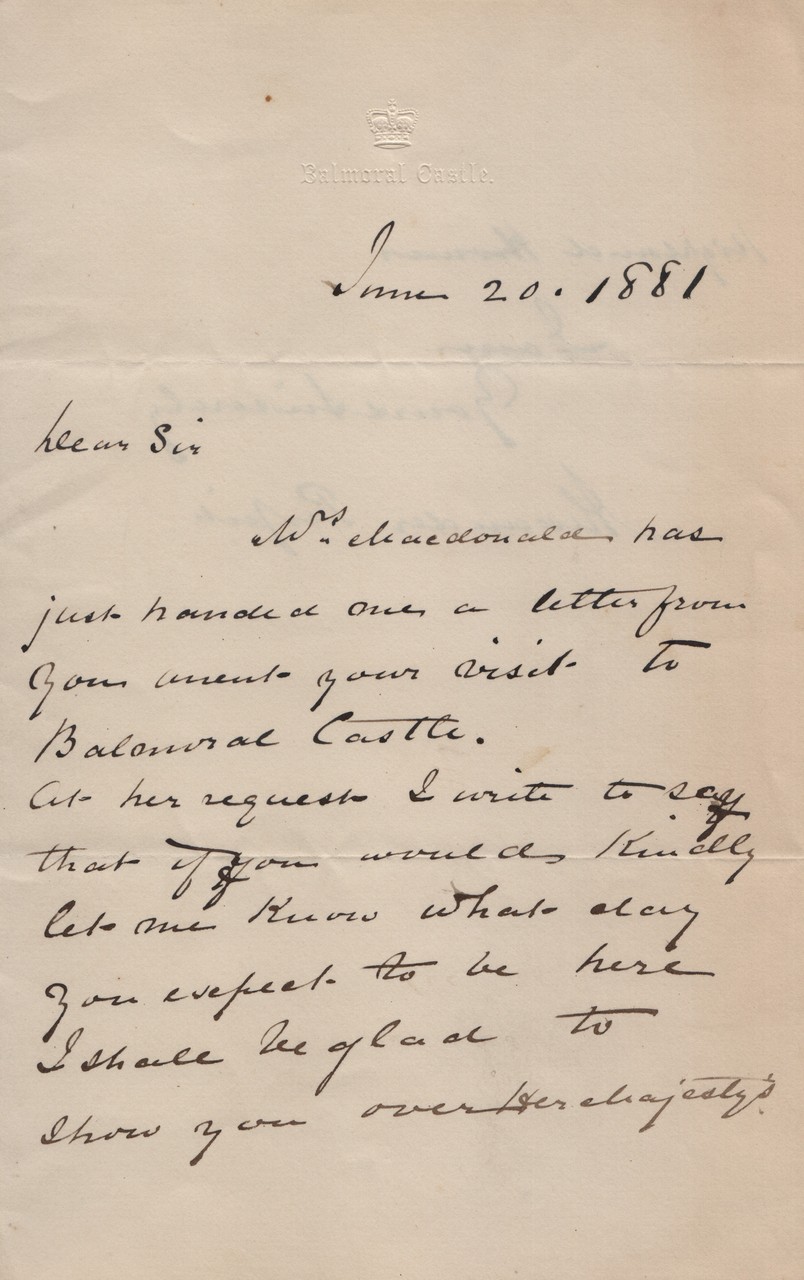 Balmoral Castle.
June 20. 1881
Dear Sir
Mrs. Macdonald has
just handed me a letter from
you anent your visit to
Balmoral Castle.
At her request I write to say
that if you would kindly
let me know what day
you expect to be here
I shall be glad to
show you over Her Majesty's